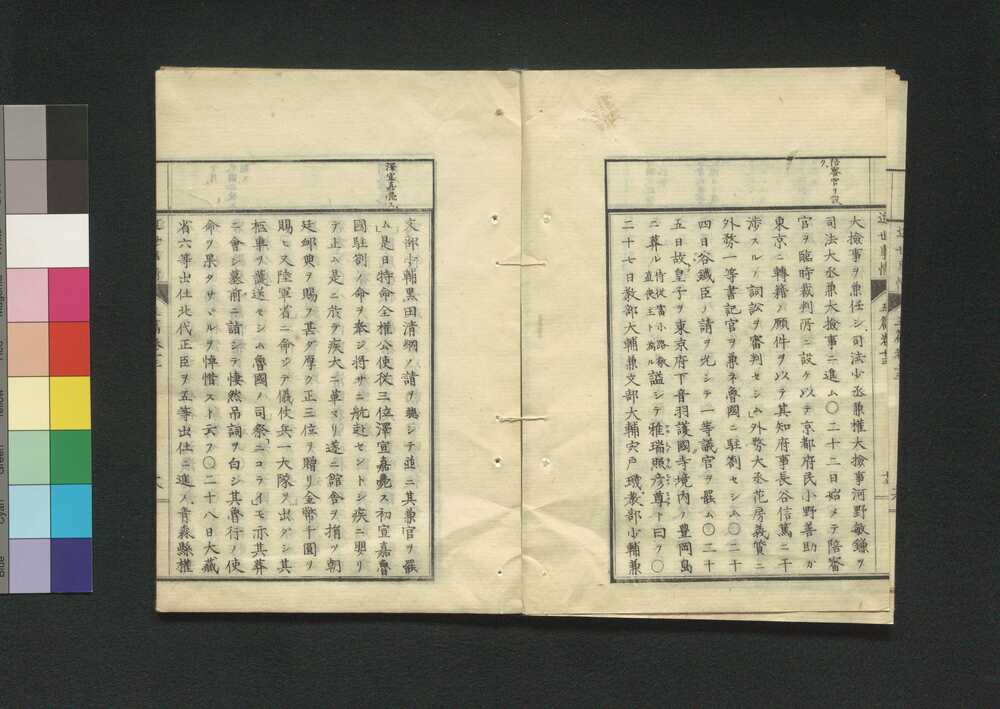 陪審官ヲ設
ク、
大撿事ヲ兼任シ司法少丞兼權大撿事河野敏鎌ヲ
司法大丞兼大撿事ニ進ム〇二十二日始メテ陪審
官ヲ臨時裁判所ニ設ケ以テ京都府民小野善助カ
東京ニ轉籍ノ願件ヲ以テ其知府事長谷信篤ニ干
渉スルノ詞訟ヲ審判セシム外務大丞花房義質ニ
外務一等書記官ヲ兼ネ魯國ニ駐劄セシム〇二十
四日谷鐵臣ノ請ヲ允シテ一等議官ヲ罷ム〇二十
五日故皇子ヲ東京府下音羽護國寺境內ノ豐岡島
ニ葬ル
諡シテ稚瑞照彦尊ト曰フ〇
二十七日敎部大輔兼文部大輔宍戶璣敎部少輔兼
澤宣嘉薨ス、
文部少輔黑田淸綱ノ請ヲ
シテ並ニ其兼官ヲ罷
ム是日特命全權公使從三位澤宣嘉薨ス初宣嘉魯
國駐劄ノ命ヲ奉シ將サニ航赴セントシ疾ニ罹リ
テ止ム是ニ於テ疾大ニ革マリ遂ニ館舍ヲ捐ツ朝
廷
ヲ賜フ甚タ厚ク正三位ヲ贈リ金幣千圓ヲ
賜ヒ又陸軍省ニ命シテ儀仗兵一大隊ヲ出タシ其
柩車ヲ護送セシム魯國ノ司祭「ニコライ」モ亦其葬
ニ會シ墓前ニ詣シテ悽然吊詞ヲ白シ其魯行ノ使
命ヲ果タサヽルヲ悼惜スト云フ〇二十八日大藏
省六等出仕北代正臣ヲ五等出仕ニ進メ靑森縣權